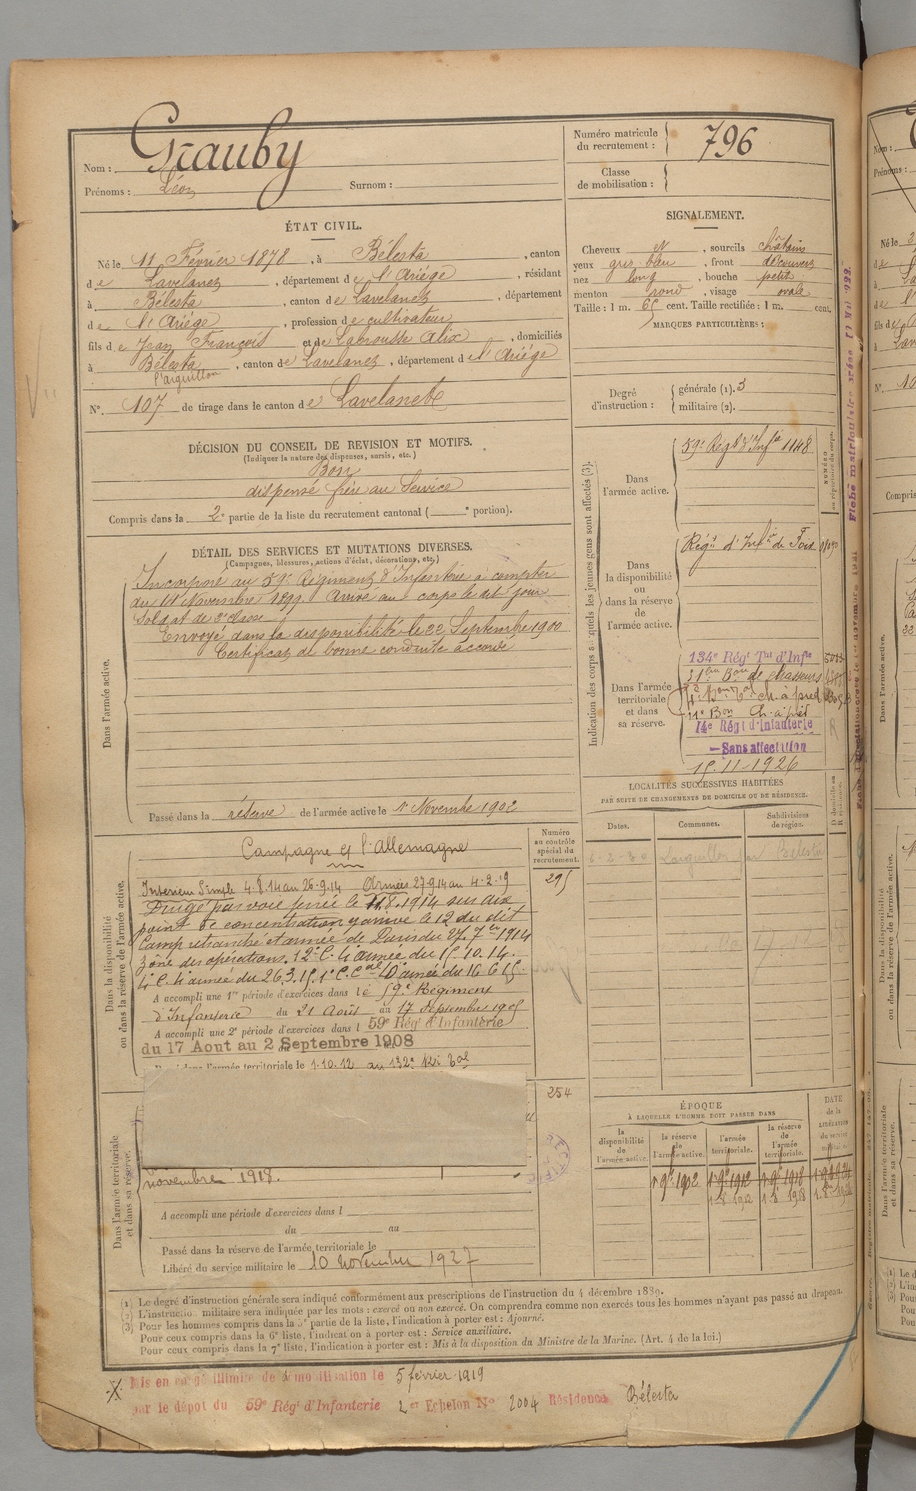 Nom : Grauby
Prénoms : Léon Surnom :
Numéro matricule du recrutement : 796
Classe de mobilisation :
ÉTAT CIVIL.
Né le 11 Février 1878, à Bélesta, canton
de Lavelanet, département de l'Ariége, résidant
à Bélesta, canton de Lavelanet, département
de l'Ariége, profession de cultivateur
fils de Jean François et de Labrousse Alix, domiciliés
à Bélesta, canton de Lavelanet, département de l'Ariége
l'aiguillon
N° 107 de tirage dans le canton de Lavelanet
SIGNALEMENT.
Cheveux et, sourcils châtains
yeux gris bleu, front découvert
nez long, bouche petite
menton rond, visage ovale
Taille : 1 m. 65 cent. Taille rectifiée : 1 m. cent.
MARQUES PARTICULIÈRES :
Degré d'instruction : générale (1). 3
militaire (2).
DÉCISION DU CONSEIL DE REVISION ET MOTIFS.
(Indiquer la nature des dispenses, sursis, etc.)
Bon
dispensé frère au Service
Compris dans la 2e partie de la liste du recrutement cantonal ( e portion).
DÉTAIL DES SERVICES ET MUTATIONS DIVERSES.
(Campagnes, blessures, actions d'éclat, décorations, etc.)
Dans l'armée active.
Incorporé au 59e Régiment d'Infanterie à compter
du 14 Novembre 1899. Arrivé au corps le dit jour
Soldat de 2e classe
Envoyé dans la disponibilité le 22 Septembre 1900
Certificat de bonne conduite accordé
Passé dans la réserve de l'armée active le 1er Novembre 1902
Indication des corps auxquels les jeunes gens sont affectés (3).
Dans l'armée active.
59e Régt d'Infie 1148
Dans la disponibilité ou dans la réserve de l'armée active.
Régt d'Infie de Foix
Dans l'armée territoriale et dans sa réserve.
134e Régt Tal d'Infie
14e Régt d'Infanterie
Sans affectation
15-11-1926
LOCALITÉS SUCCESSIVES HABITÉES
PAR SUITE DE CHANGEMENTS DE DOMICILE OU DE RÉSIDENCE.
Dates. Communes. Subdivisions de région.
Bélesta
Numéro au contrôle spécial du recrutement.
295
Dans la disponibilité ou dans la réserve de l'armée active.
Campagne ct l'Allemagne
Intérieur Simple 4.8.14 au 26-9.14 Armées 27.9.14 au 4-2.19
Dirigé par voie ferrée le 11.8.1914 sur
point de concentration y arrive le 12 du dit
Camp retranché et armée de Paris du 27.7bre 1914
zône des opérations. 12e C. 4e armée du 15.10.14.
A accompli une 1re période d'exercices dans le 59e Régiment
d'Infanterie du 21 Août au 17 Septembre 1905
A accompli une 2e période d'exercices dans l 59e Rég d'Infanterie
du 17 Aout au 2 Septembre 1908
l'armée territoriale le 1.10.12 au 132e
254
Dans l'armée territoriale et dans sa réserve.
novembre 1918.
A accompli une période d'exercices dans l
du au
Passé dans la réserve de l'armée territoriale le
Libéré du service militaire le 10 novembre 1927
ÉPOQUE
À LAQUELLE L'HOMME DOIT PASSER DANS
la disponibilité de l'armée active. la réserve de l'armée active. l'armée territoriale. la réserve de l'armée territoriale. DATE de la LIBÉRATION du service
(1) Le degré d'instruction générale sera indiqué conformément aux prescriptions de l'instruction du 4 décembre 1889.
(2) L'instruction militaire sera indiquée par les mots : exercé ou non exercé. On comprendra comme non exercés tous les hommes n'ayant pas passé au drapeau.
(3) Pour les hommes compris dans la 5e partie de la liste, l'indication à porter est : Ajourné.
Pour ceux compris dans la 6e liste, l'indication à porter est : Service auxiliaire.
Pour ceux compris dans la 7e liste, l'indication à porter est : Mis à la disposition du Ministre de la Marine. (Art. 4 de la loi.)
Mis en congé illimité de démobilisation le 5 février 1919
par le dépot du 59e Rég d'Infanterie 2e Echelon No 2004 Résidence Bélesta